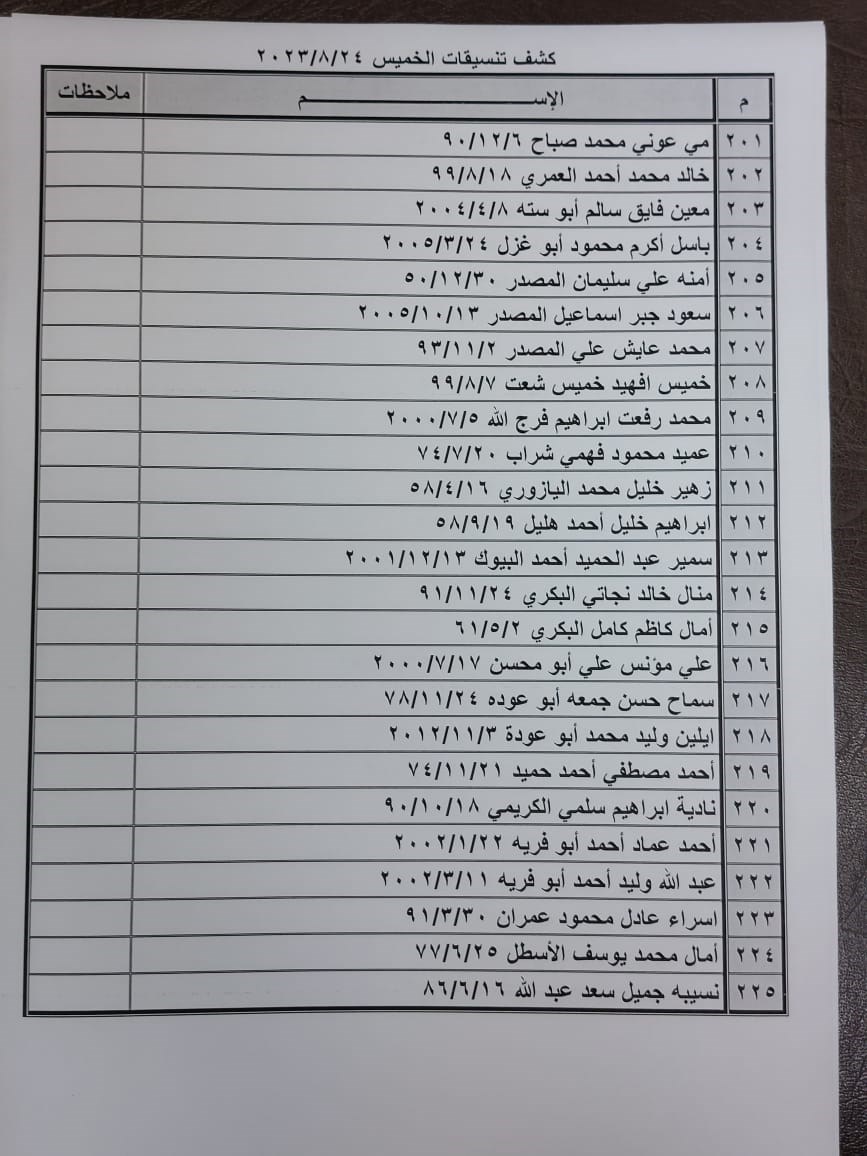 كشف تنسيقات الخميس ٢٠٢٣/٨/٢٤
م الإســـــم ملاحظات
٢٠١ مي عوني محمد صباح ٩٠/١٢/٦
٢٠٢ خالد محمد أحمد العمري ٩٩/٨/١٨
٢٠٣ معين فايق سالم أبو سته ٢٠٠٤/٤/٨
٢٠٤ باسل أكرم محمود أبو غزل ٢٠٠٥/٣/٢٤
٢٠٥ أمنه علي سليمان المصدر ٥٠/١٢/٣٠
٢٠٦ سعود جبر اسماعيل المصدر ٢٠٠٥/١٠/١٣
٢٠٧ محمد عايش علي المصدر ٩٣/١١/٢
٢٠٨ خميس افهيد خميس شعت ٩٩/٨/٧
٢٠٩ محمد رفعت ابراهيم فرج الله ٢٠٠٠/٧/٥
٢١٠ عميد محمود فهمي شراب ٧٤/٧/٢٠
٢١١ زهير خليل محمد اليازوري ٥٨/٤/١٦
٢١٢ ابراهيم خليل أحمد هليل ٥٨/٩/١٩
٢١٣ سمير عبد الحميد أحمد البيوك ٢٠٠١/١٢/١٣
٢١٤ منال خالد نجاتي البكري ٩١/١١/٢٤
٢١٥ أمال كاظم كامل البكري ٦١/٥/٢
٢١٦ علي مؤنس علي أبو محسن ٢٠٠٠/٧/١٧
٢١٧ سماح حسن جمعه أبو عوده ٧٨/١١/٢٤
٢١٨ ايلين وليد محمد أبو عودة ٢٠١٢/١١/٣
٢١٩ أحمد مصطفي أحمد حميد ٧٤/١١/٢١
٢٢٠ نادية ابراهيم سلمي الكريمي ٩٠/١٠/١٨
٢٢١ أحمد عماد أحمد أبو فريه ٢٠٠٢/١/٢٢
٢٢٢ عبد الله وليد أحمد أبو فريه ٢٠٠٢/٣/١١
٢٢٣ اسراء عادل محمود عمران ٩١/٣/٣٠
٢٢٤ أمال محمد يوسف الأسطل ٧٧/٦/٢٥
٢٢٥ نسيبه جميل سعد عبد الله ٨٦/٦/١٦